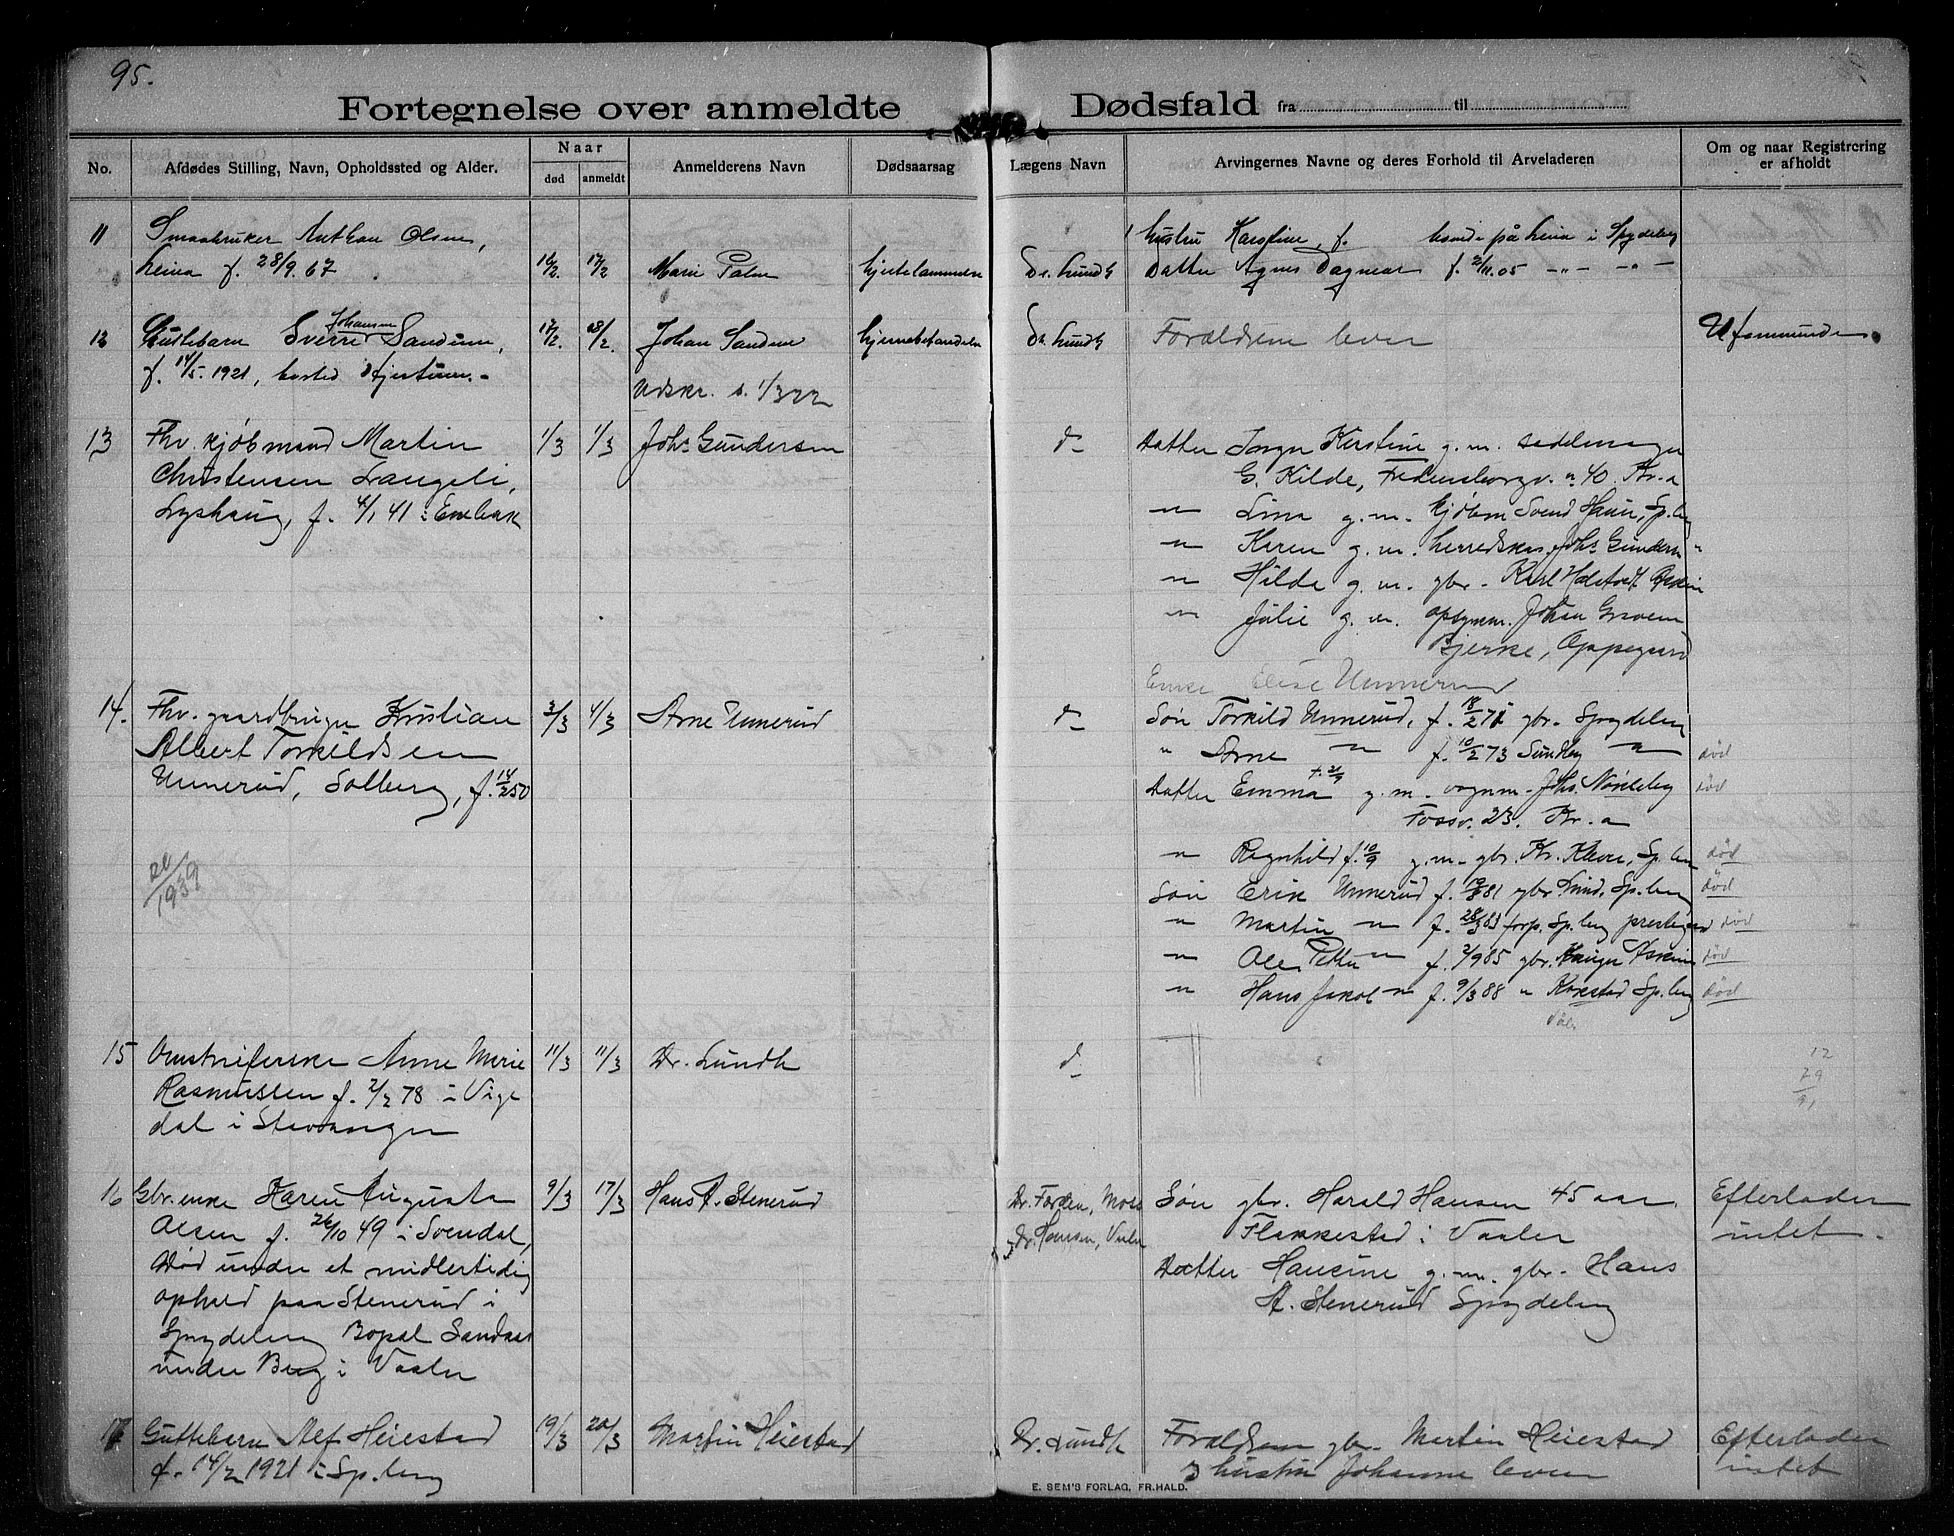 95.
Fortegnelse over anmeldte Dødsfald fra til
No.
Afdødes Stilling, Navn, Opholdssted og Alder.
Naar
død
anmeldt
Anmelderens Navn
Dødsaarsag
Lægens Navn
Arvingernes Navne og deres Forhold til Arveladeren
Om og naar Registrering
er afholdt
11 Smaabruker Anthon Olsen, Hustru Karstine, f. i Spydeberg
f. 28/9. 67 16/2. 17/2 Marie Dr. Lundh Datter Agnes Dagmar f. 2/11.05 -"- -"-
Johansen
12 Guttebarn Sverre 17/2. 18/2. Johan Dr. Lundh Forældrene lever Uformuende
f. 14/5. 1921, bosted
Udskr. s. 1/3 22
13 Fhv. kjøbmand Martin 1/3 1/3 Johs Gundersen d- Datter Kirstine g.m. sadelmager
Christensen Langeli, G. Kilde, Fredensborgv. n 40. Kr.a
Lyshaug, f. 4/1 41 i Enebak -"- Lina g.m. kjøbm Svend Sp.berg
-"- Karen g.m. herredskas. Johs Gundersen "
-"- Hilda g.m. gbr. Karl Askim
-"- Julie g.m. Johan
Bjerke, Oppegaard
Enke Elise Unnerud
14. Fhv. gaardbruger Kristian 3/3 4/3 Arne Unnerud d- Søn Torkild Unnerud, f. gbr. Spydeberg
Albert Torkildsen " Arne -"- f. 10/2 73 -"- død
Unnerud, Solberg, f. 14/2 50 Datter Emma g.m. vognm. Johs. død
Fossv. 23. Kr.a
-"- Ragnhild f. 10/9 g.m. gbr. Kr. Sp.berg død
20/1939
Søn Erik Unnerud f. gbr. Lund, Sp.berg død
-"- Martin -"- f. 28/3 83 forp. Sp.berg prestegaard død
-"- Ole Petter -"- f. 2/9 85 gbr. Askim død
-"- Hans Jakob -"- f. 9/3 88 " Sp.berg død
15 Omstreiferske Anne Marie 11/3 11/3 Dr. Lundh d-
Rasmussen f. 2/2 78 i Vige
dal i Stavanger
12
79
91
16 Gbr. enke Karen Augusta 9/3 17/3 Hans A. Stenerud Dr. Forden, Moss Søn gbr. Harald Hansen 45 aar Efterlader
Olsen f. 26/10 49 i Svendal, Dr. Hansen, Vaaler Flakkestad i Vaaler intet.
Død under et midlertidig Datter Hansine g.m. gbr. Hans
ophold paa Stenerud i A. Stenerud Spydeberg
Spydeberg Bopæl Sandaas
under Berg i Vaaler
17 Guttebarn Alf Heiestad 19/3 20/3 Martin Heiestad Dr. Lundh Forældrene gbr. Martin Heiestad Efterlader
f. 14/2 1921 i Sp.berg og hustru Johanne lever intet
E. SEM'S FORLAG, FR.HALD.